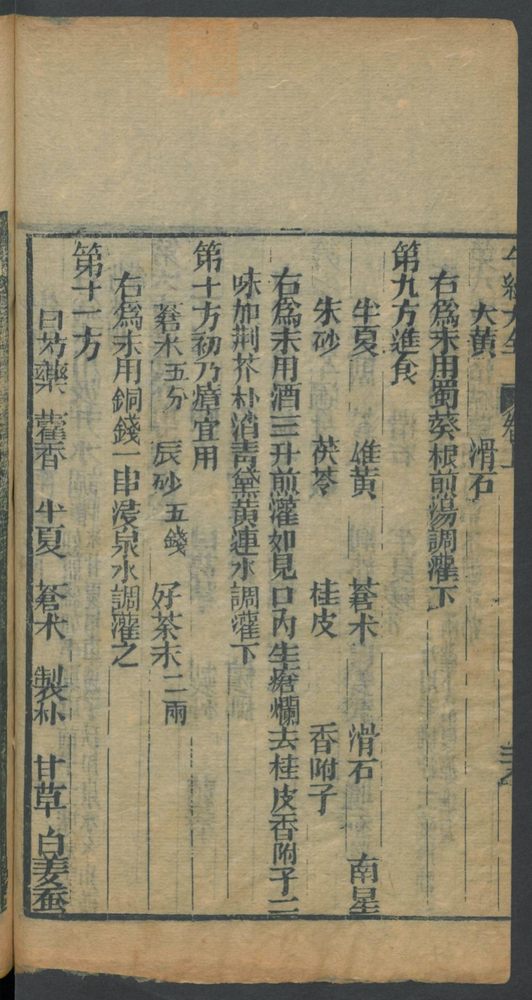 牛經大全 卷二
大黃 滑石
右爲末用蜀葵根煎湯調灌下
第九方進食
半夏 雄黃 蒼术 滑石 南星
朱砂 茯苓 桂皮 香附子
右爲末用酒三升煎灌如見口內生瘡爛去桂皮香附子二
味加荆芥朴消靑黛黃連水調灌下
第十方初乃瘴宜用
蒼术五分 辰砂五錢 好茶末二兩
右爲末用銅錢一串浸泉水調灌之
第十一方
白芍藥 藿香 半夏 蒼术 製朴 甘草 白姜蚕